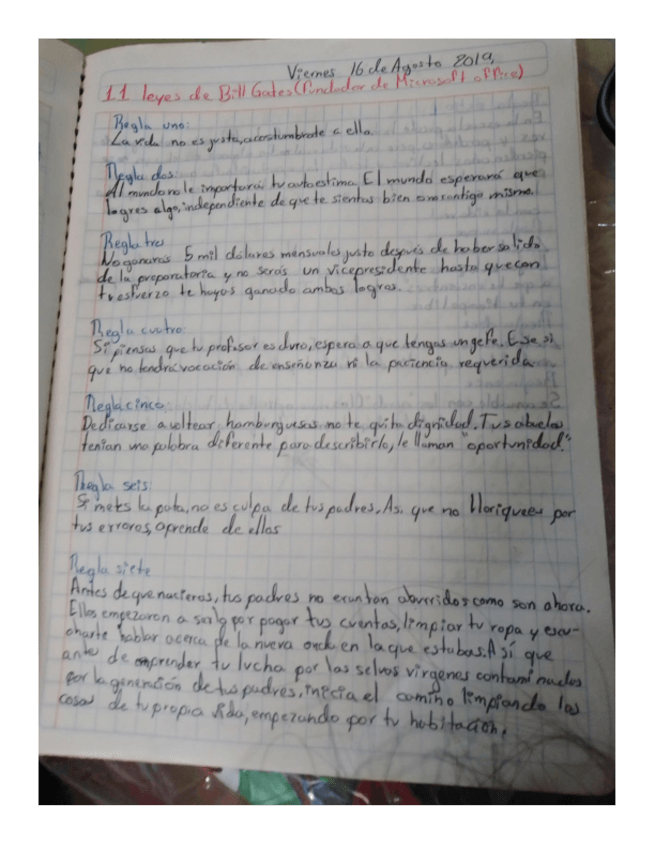 Viernes 16 de Agosto 2019,
11 leyes de Bill Gates (Fundador de Microsoft office)
Regla uno:
La vida no es justa, acostumbrate a ella.
Regla dos:
Al mundo no le importará tu autoestima. El mundo esperará que
logres algo, independiente de que te sientas bien o no contigo mismo.
Regla tres
No ganaras 5 mil dólares mensuales justo después de haber salido
de la preparatoria y no serás un vicepresidente hasta que con
tu esfuerzo te hayas ganado ambos logros.
Regla cuatro:
Si piensas que tu profesor es duro, espera a que tengas un gefe. Ese si
que no tendrá vocación de enseñanza ni la paciencia requerida.
Regla cinco:
Dedicarse a voltear hamburguesas no te quita dignidad. Tus abuelos
tenian una palabra diferente para describirlo, le llaman "oportunidad."
Regla seis:
Si metes la pata, no es culpa de tus padres. Asi que no lloriquees por
tus errores, aprende de ellos
Regla siete
Antes de que nacieras, tus padres no eran tan aburridos como son ahora.
Ellos empezaron a por pagar tus cuentas, limpiar tu ropa y escu-
charte hablar acerca de la nueva onda en la que estabas. Así que
antes de emprender tu lucha por las selvas virgenes contaminadas
por la generación de tus padres, inicia el camino limpiando las
cosas de tu propia vida, empezando por tu habitación.